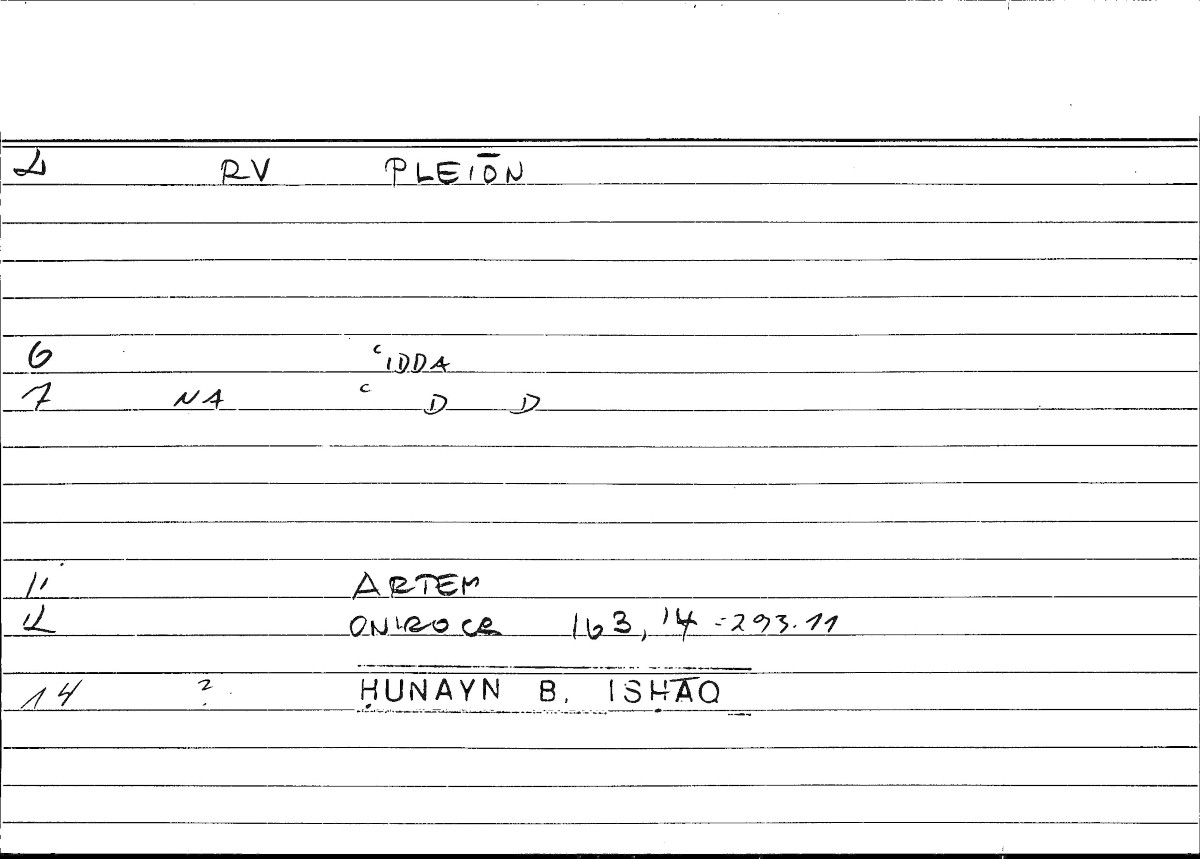 2 RV PLEIŌN
6 ʿIDDA
7 NA ʿ D D
11 ARTEM
12 ONIROCR 163,14 = 293.11
14 ? ḤUNAYN B. ISḤĀQ